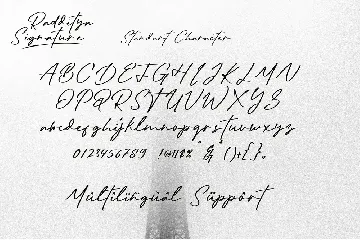 Radditya
Signature
Standart Character
ABCDEFGHIJKLMN
OPQRSTUVWXYS
abcdefghijklmnopqrstuvwxyz
0123456789 !@#$% & ()+[].
Multilingüal Süppört